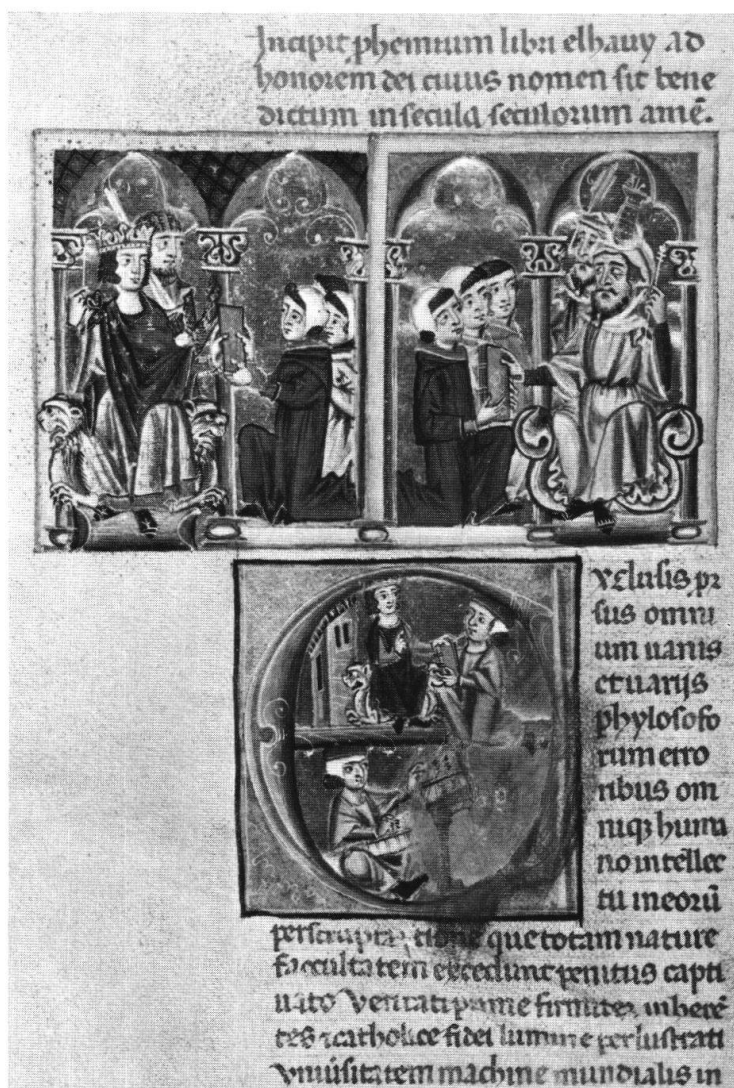 Incipit phemium libri elhauy ad
honorem dei cuius nomen sit bene
dictum in secula seculorum amē.
xclusis pr
sus omni
um uanis
et uarijs
phylosofo
rum erro
ribus om
niqꝫ huma
no intellec
tu in eorū
que totam nature
facultatem excedunt penitus capti
uato veritati prime firmiter inherē
tes ⁊ catholice fidei lumine perlustrati
vniuersitatem machine mundialis in